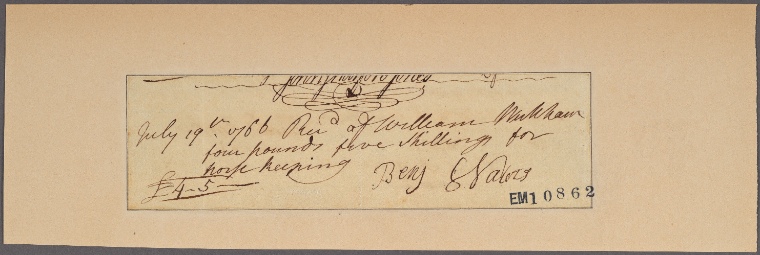 July 19th 1766 Recd of William Wickham
four pounds five shillings for
horse keeping
£4-5- Benj
EM10862